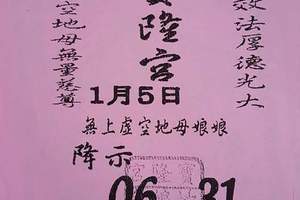 效法厚德光大
隆宮
空地母無量慈尊
1月5日
無上虛空地母娘娘
降示
06 31